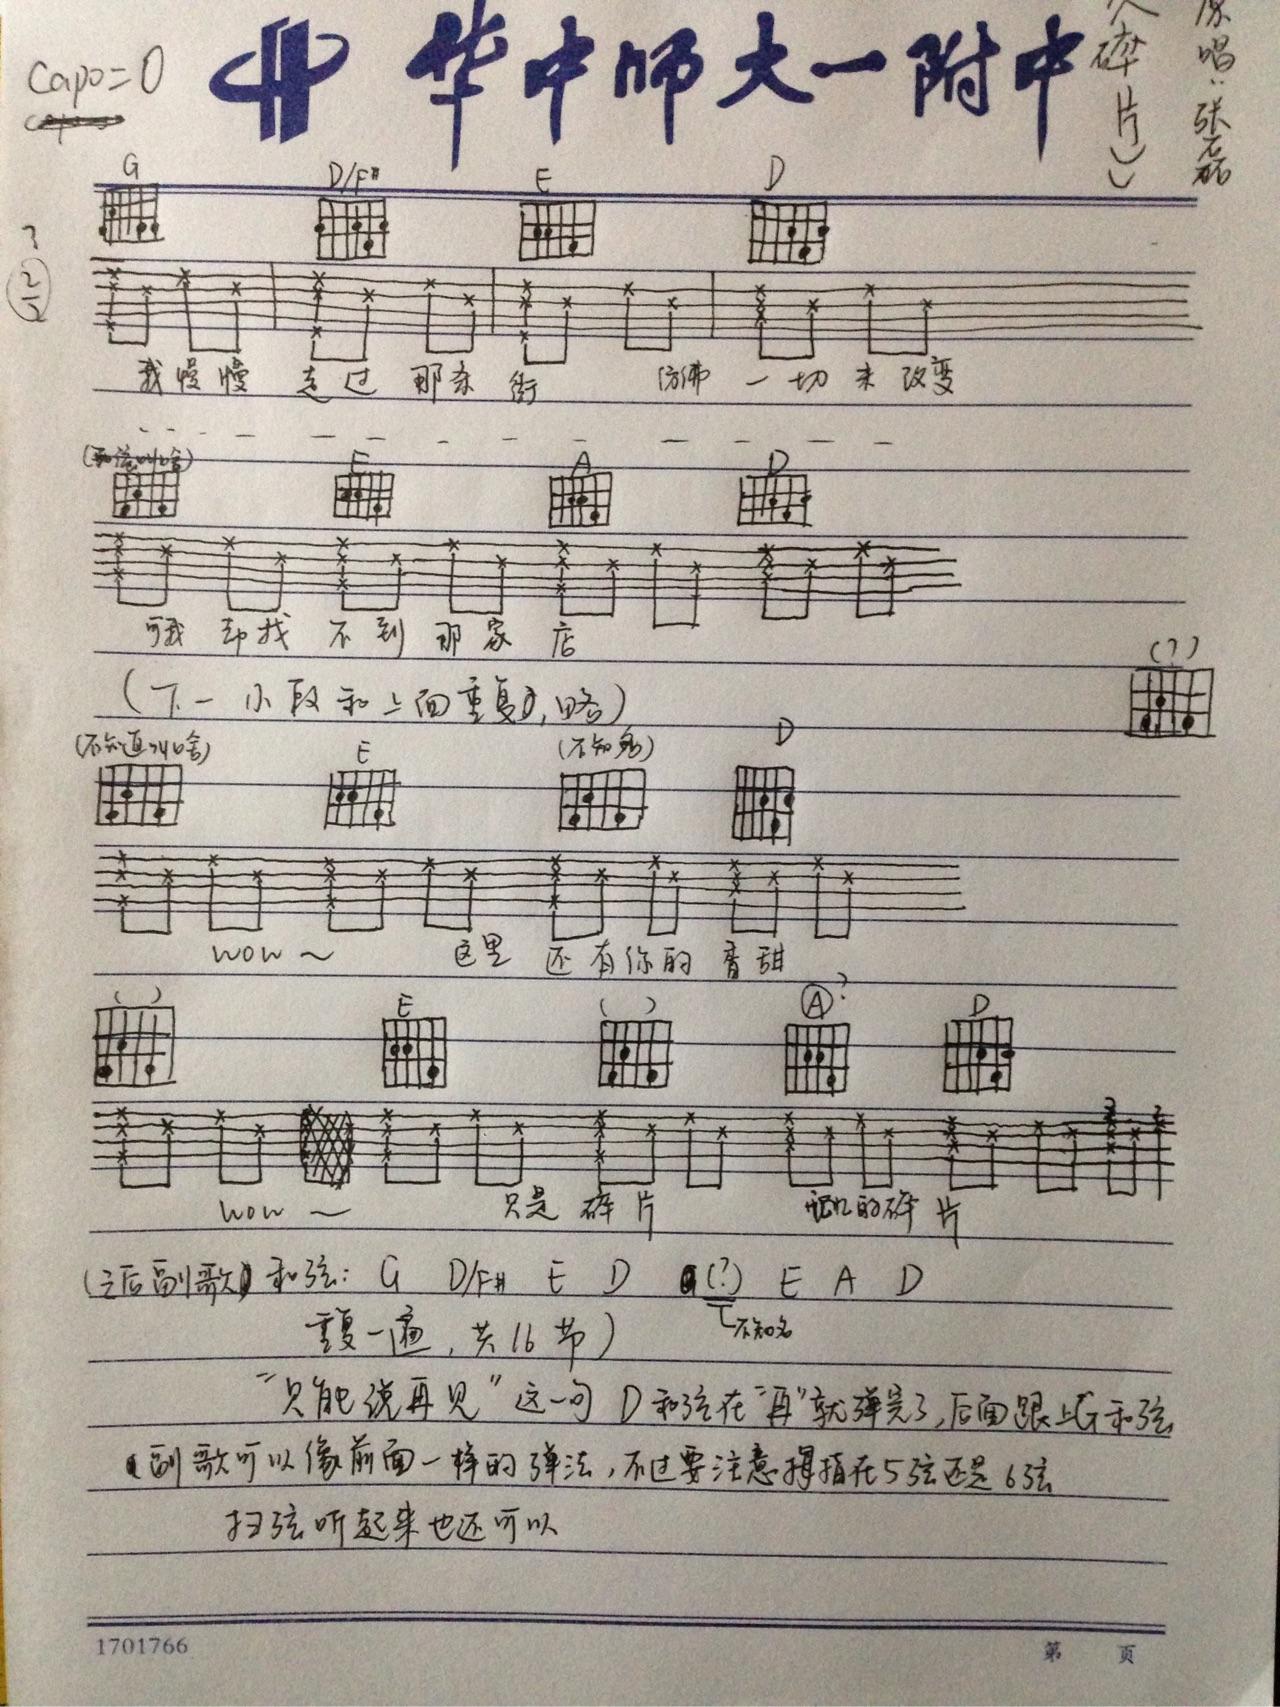 capo=0
华中师大一附中
《碎片》
原唱：张磊
G D/F# E D
我慢慢 走过 那条 街 仿佛 一切未改变
E A D
可我 却找 不到 那家 店
(下一小段和上面重复,略)
(?)
(不知道叫啥) E (不知名) D
wow～ 这里 还有你的香甜
( ) E ( ) A? D
wow～ 只是碎片 的碎片
(之后副歌) 和弦: G D/F# E D (?) E A D
不知名
重复一遍,共16节)
“只能说再见”这一句 D和弦在“再”就弹完了,后面跟上G和弦
副歌可以像前面一样的弹法,不过要注意拇指在5弦还是6弦
扫弦听起来也还可以
1701766
第 页